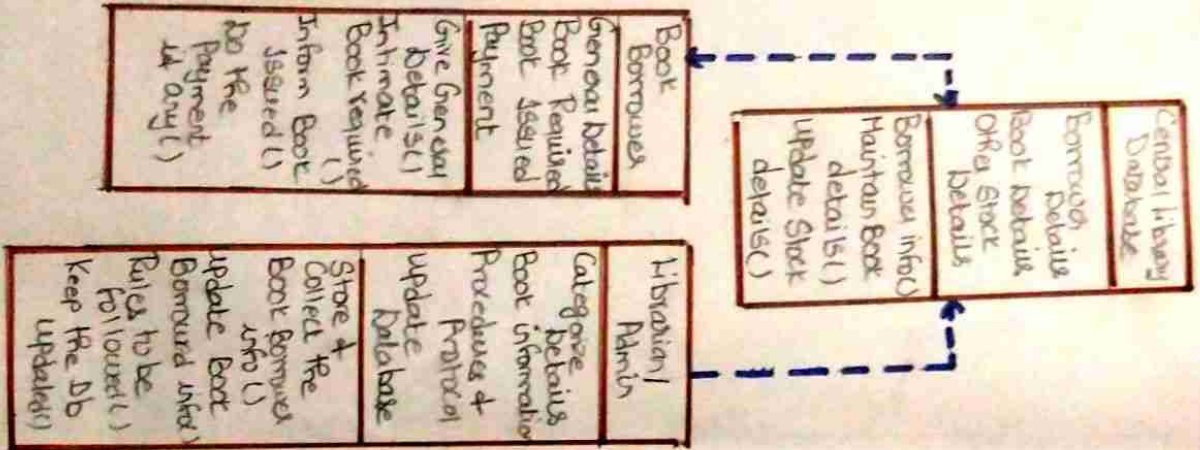 Central Library
Database
Borrower
Details
Book Details
Other Stock
Details
Borrower info()
Maintain Book
details()
Update Stock
details()
Book
Borrower
General Details
Book Required
Book Issued
Payment
Give General
Details()
Intimate
Book required
()
Inform Book
issued()
Do the
Payment
if any()
Librarian/
Admin
Categorize
Details
Book information
Procedures &
Protocol
Update
Database
Store &
Collect the
Book Borrower
info()
Update Book
Borrowed info()
Rules to be
followed()
Keep the Db
updated()